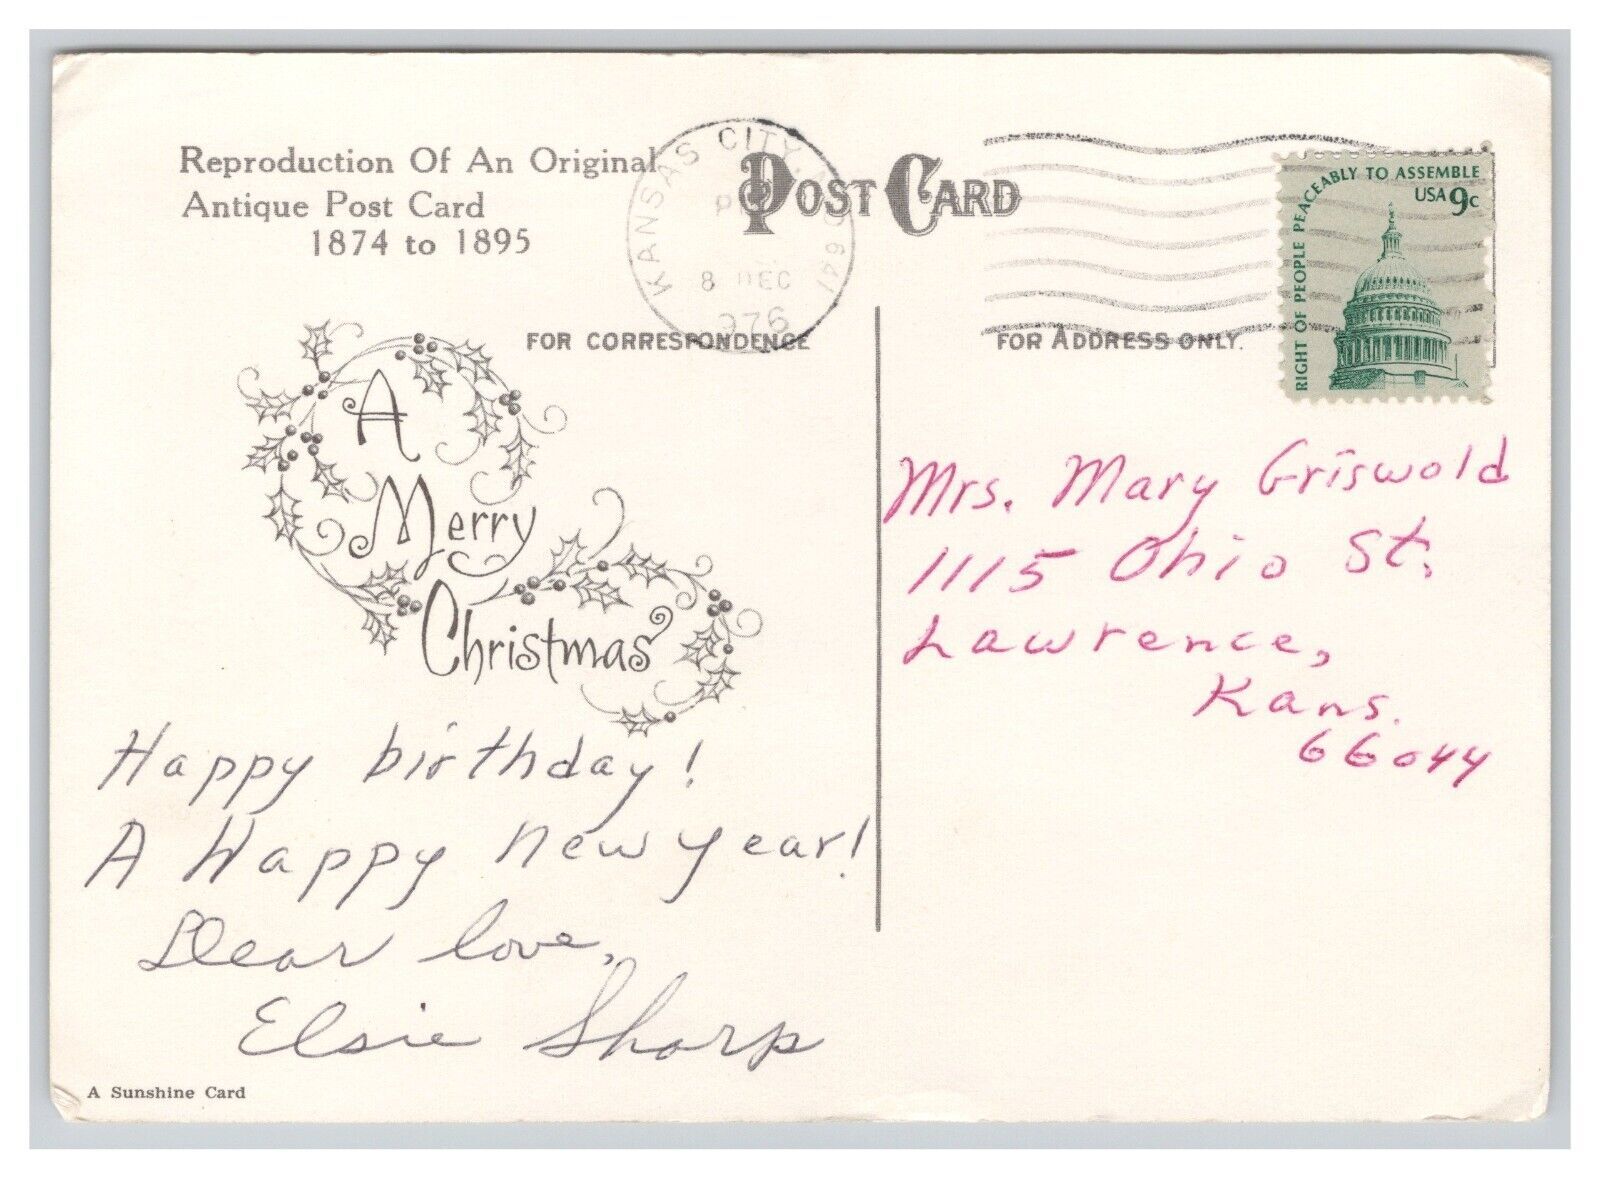 Reproduction Of An Original
Antique Post Card
1874 to 1895
KANSAS CITY, MO 641
PM
8 DEC
1976
POST CARD
RIGHT OF PEOPLE PEACEABLY TO ASSEMBLE
USA 9c
FOR CORRESPONDENCE
FOR ADDRESS ONLY.
A
Merry
Christmas
Mrs. Mary Griswold
1115 Ohio St.
Lawrence,
Kans.
66044
Happy birthday!
A Happy New year!
Dear love,
Elsie Sharp
A Sunshine Card